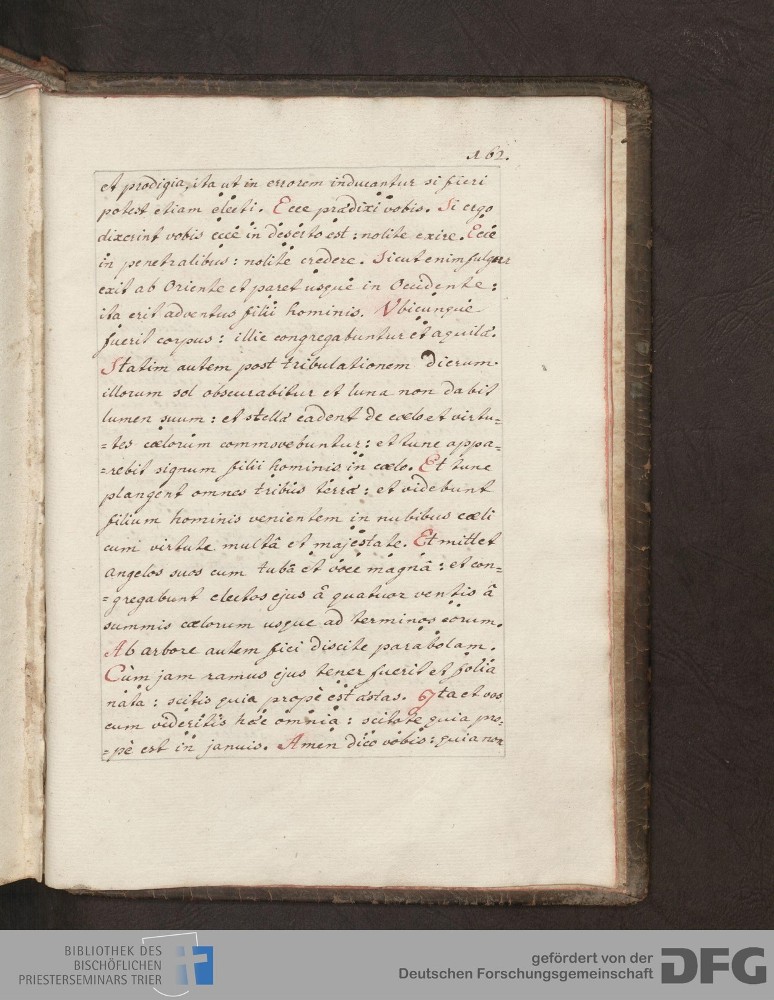 162.
et prodigia, ita ut in errorem inducantur si fieri
potest etiam electi. Ecce prædixi vobis. Si ergo
dixerint vobis ecce in deserto est : nolite exire. Ecce
in penetralibus : nolite credere. Sicut enim fulgur
exit ab Oriente et paret usque in Occidente :
ita erit adventus filii hominis. Vbicunque
fuerit corpus : illic congregabuntur et aquilæ.
Statim autem post tribulationem dierum
illorum sol obscurabitur et luna non dabit
lumen suum : et stellæ cadent de cœlo et virtu-
-tes cœlorum commovebuntur : et tunc appa-
-rebit signum filii hominis in cœlo. Et tunc
plangent omnes tribus terræ : et videbunt
filium hominis venientem in nubibus cœli
cum virtute multâ et majestate. Et mittet
angelos suos cum tubâ et voce magnâ : et con-
-gregabunt electos ejus â quatuor ventis â
summis cœlorum usque ad terminos eorum.
Ab arbore autem fici discite parabolam.
Cùm jam ramus ejus tener fuerit et folia
nata : scitis quia propè est æstas. Ita et vos
cum videritis hæc omnia : scitote quia pro-
-pè est in januis. Amen dico vobis : quia non
BIBLIOTHEK DES
BISCHÖFLICHEN
PRIESTERSEMINARS TRIER
gefördert von der
Deutschen Forschungsgemeinschaft
DFG